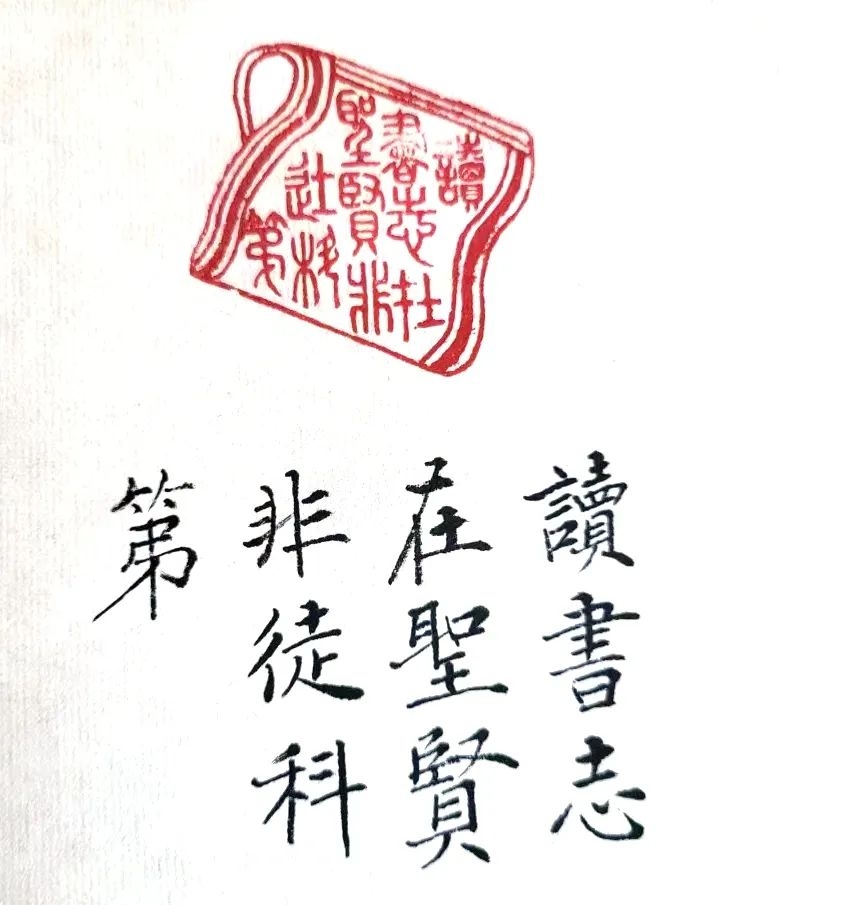 讀
書志在
聖賢非
徒科
第
讀書志
在聖賢
非徒科
第